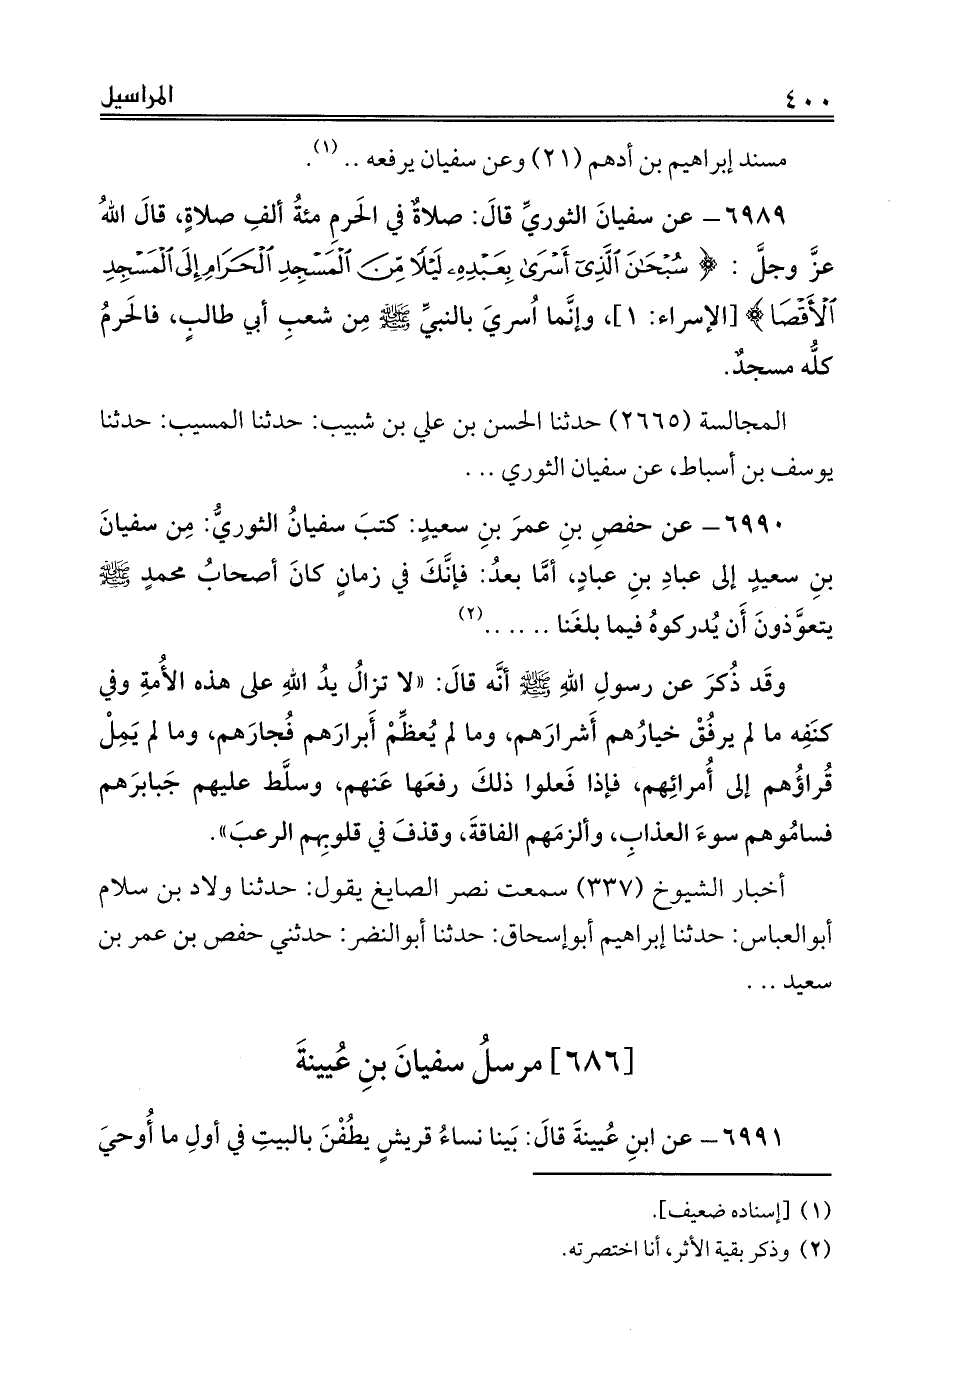 ٤٠٠ المراسيل
مسند إبراهيم بن أدهم (٢١) وعن سفيان يرفعه .. (١).
٦٩٨٩ – عن سفيانَ الثوريِّ قالَ: صلاةٌ في الحَرمِ مئةُ ألفِ صلاةٍ، قالَ اللهُ
عزَّ وجلَّ : ﴿ سُبْحَٰنَ ٱلَّذِىٓ أَسْرَىٰ بِعَبْدِهِۦ لَيْلًا مِّنَ ٱلْمَسْجِدِ ٱلْحَرَامِ إِلَى ٱلْمَسْجِدِ
ٱلْأَقْصَا﴾ [الإسراء: ١]، وإنَّما أُسريَ بالنبيِّ ﷺ مِن شعبِ أبي طالبٍ، فالحَرمُ
كلُّه مسجدٌ.
المجالسة (٢٦٦٥) حدثنا الحسن بن علي بن شبيب: حدثنا المسيب: حدثنا
يوسف بن أسباط، عن سفيان الثوري ...
٦٩٩٠ – عن حفصِ بنِ عمرَ بنِ سعيدٍ: كتبَ سفيانُ الثوريُّ: مِن سفيانَ
بنِ سعيدٍ إلى عبادِ بنِ عبادٍ، أمَّا بعدُ: فإنَّكَ في زمانٍ كانَ أصحابُ محمدٍ ﷺ
يتعوَّذونَ أَن يُدركوهُ فيما بلغَنا ......(٢)
وقَد ذُكرَ عن رسولِ اللهِ ﷺ أنَّه قالَ: «لا تزالُ يدُ اللهِ على هذه الأُمةِ وفي
كنَفِه ما لم يرفُقْ خيارُهم أَشرارَهم، وما لم يُعظِّمْ أَبرارَهم فُجارَهم، وما لم يَمِلْ
قُراؤُهم إلى أُمرائِهم، فإذا فَعلوا ذلكَ رفعَها عَنهم، وسلَّط عليهم جَبابرَهم
فسامُوهم سوءَ العذابِ، وألزمَهم الفاقةَ، وقذفَ في قلوبِهم الرعبَ».
أخبار الشيوخ (٣٣٧) سمعت نصر الصايغ يقول: حدثنا ولاد بن سلام
أبوالعباس: حدثنا إبراهيم أبوإسحاق: حدثنا أبوالنضر: حدثني حفص بن عمر بن
سعيد ...
[٦٨٦] مرسلُ سفيانَ بنِ عُيينةَ
٦٩٩١ – عن ابنِ عُيينةَ قالَ: بَينا نساءُ قريشٍ يطُفْنَ بالبيتِ في أولِ ما أُوحيَ
(١) [إسناده ضعيف].
(٢) وذكر بقية الأثر، أنا اختصرته.